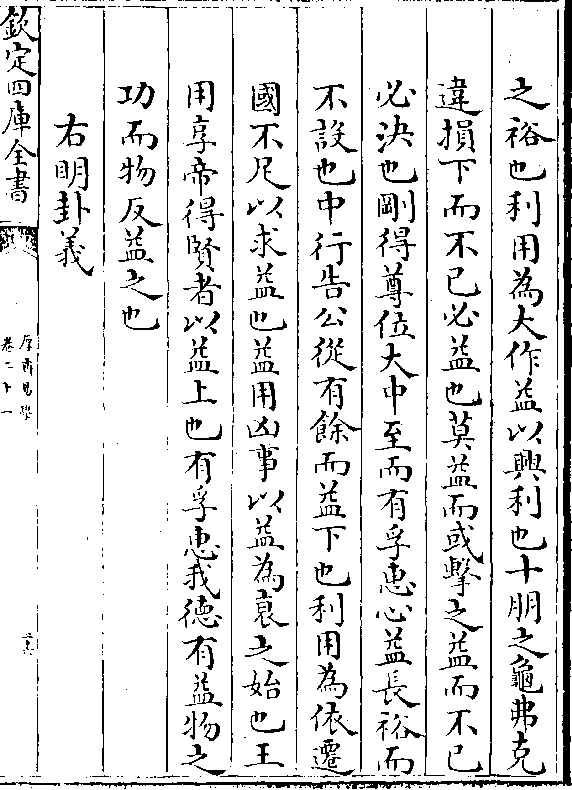 之裕也利用為大作益以興利也十朋之龜弗克
違損下而不已必益也莫益而或擊之益而不已
必決也剛得尊位大中至而有孚惠心益長裕而
不設也中行告公從有餘而益下也利用為依遷
國不足以求益也益用凶事以益為衰之始也王
用享帝得賢者以益上也有孚惠我德有益物之
功而物反益之也
右明卦義
欽定四庫全書
厚齋易學
卷二十一